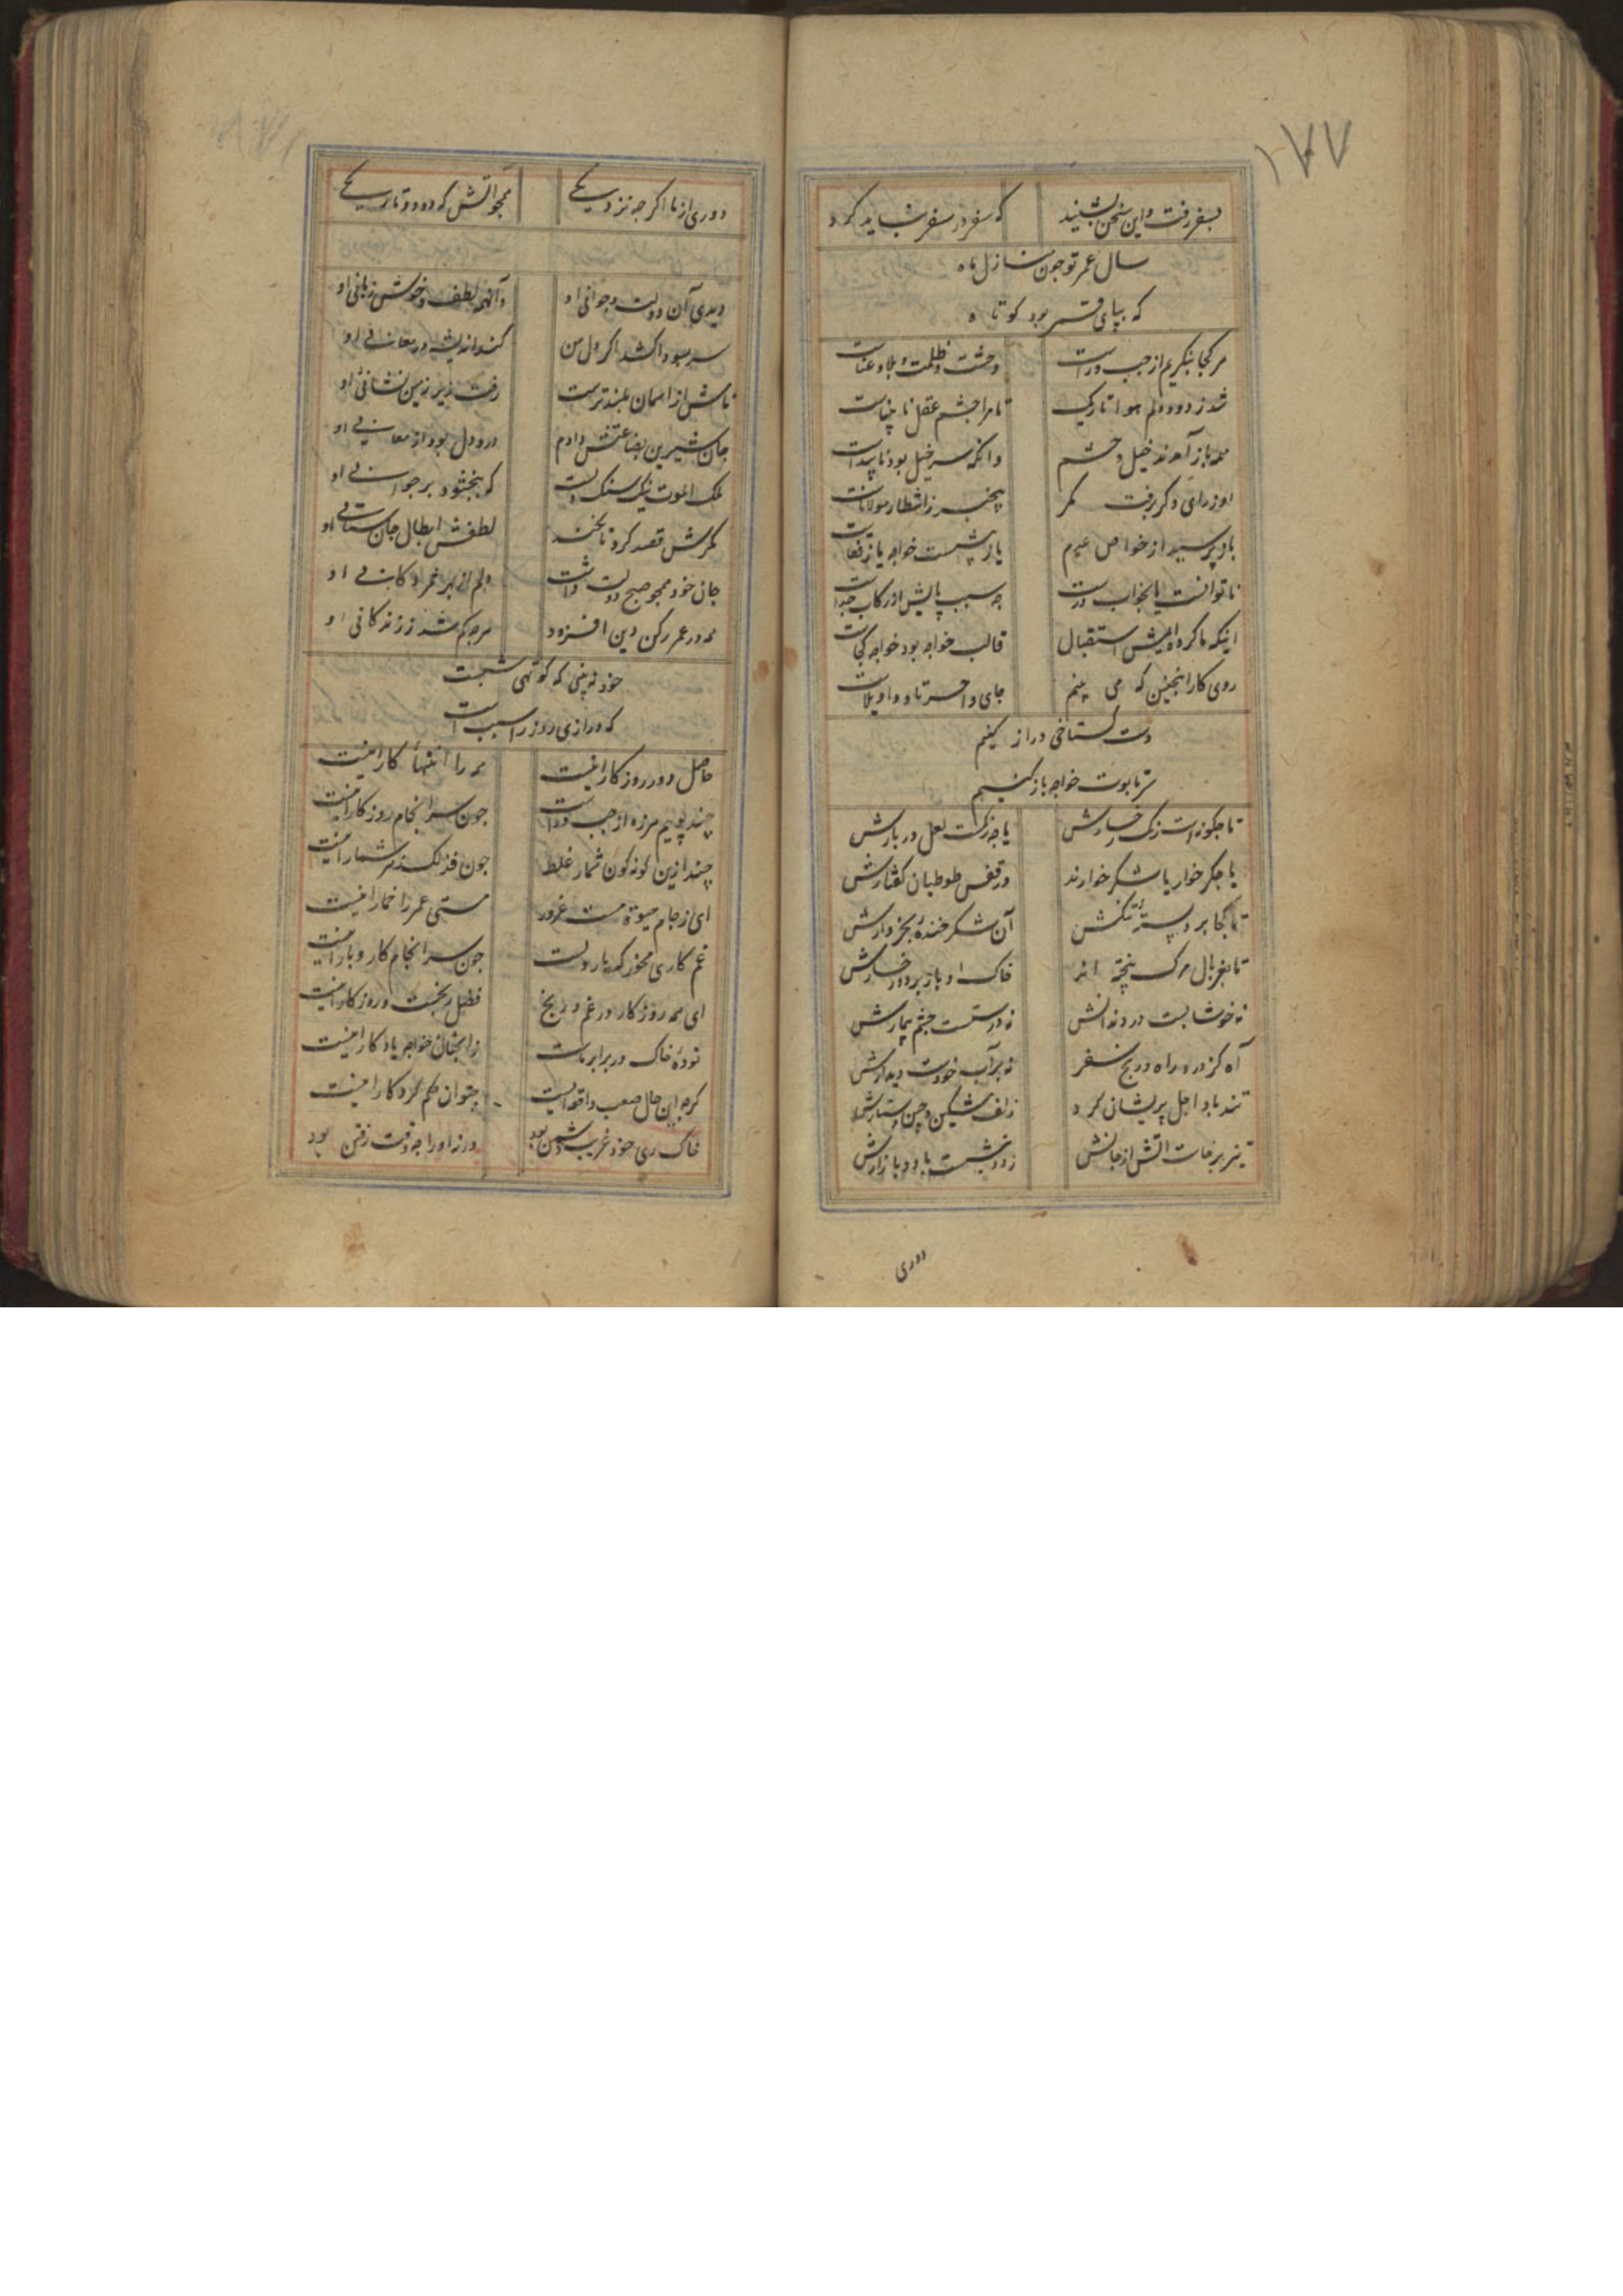 ۱۷۷
بسفر رفت و این سخن نشنید که سفر در سفر نشاید کرد
سال عمر تو چون منازل ماه
که بپای قمر بود کوتاه
هر کجا بنگریم از چپ و راست وحشت و ظلمت و بلا و عناست
شد ز دود دلم هوا تاریک تا مرا چشم عقل نابیناست
همه باز آمدند خیل و حشم وانکه سر خیل بود ناپیداست
او ز رای دگر برفت مگر بیخبر ز انتظار مولاناست
باز پرسید از خواص حرم باز نشست خواجه یا برخاست
ناتوانست یا بخواب درست چه سبب پایش از رکاب جداست
اینکه ما کرده‌ایمش استقبال قالب خواجه بود خواجه کجاست
روی کار اینچنین که می بینم جای واحسرتا و واویلاست
دست گستاخی دراز کنیم
سر تابوت خواجه باز کنیم
تا چگونه است رنگ رخسارش یا چه رنگست لعل دربارش
یا جگر خوار یا شکر خوارند در قفس طوطیان گفتارش
تا کجا برد پسته تنگش آن شکر خنده بخروارش
تا بغربال مرگ بیخته اند خاک ادبار بر دو رخسارش
نه خوشابست در دندانش نه درستست چشم بیمارش
آه کز درد راه و رنج سفر نه بر آب خودست دیدارش
تند باد اجل پریشان کرد زلف مشکین و چین دستارش
تیز برخاست آتش از جانش زود بنشست باد بازارش
دوری
دوری از ما اگر چه نزدیکی همچو آتش که دود و تاریکی
دیدی آن دولت و جوانی او وآنهمه لطف و خوش زبانی او
سر سودا کشد اگر دل من کند اندیشه در معانی او
نامش از آسمان بلندترست رفت زیر زمین نشانی او
جان شیرین بضاعتش دادم درد دل بود از معانی او
ملک الموت نیک سنگ دلست که نبخشود بر جوانی او
مکرش قصد کرد تا نکند لطفش ابطال جان ستانی او
جان خود همچو صبح دولت داشت دلم از بهر مرادکانی او
همه در عمر رکن دین افزود هرچه کم شد ز زندگانی او
خود نه بینی که کوتهی شبست
که درازی روز را سبب است
حاصل دور روزگار اینست همه را انتهاء کار اینست
چند پوییم هرزه از چپ و راست چون سرانجام روزگار اینست
چند ازین گونه گون شمار غلط چون فذلک بهر شمار اینست
ای ز جام حیوة مست غرور مستی عمر را خمار اینست
غم کاری مخور که باردلست چون سرانجام کار و بار اینست
ای همه روزگار در غم و رنج فضل بخت و روزگار اینست
توده خاک در برابر ماست زانچنان خواجه یادگار اینست
گرچه این حال صعب واقعه ایست چتوان حکم کردگار اینست
خاک ری خود غریب دشمن بود ورنه او را چه وقت رفتن بود